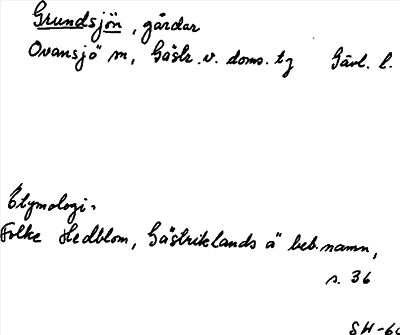 Grundsjön, gårdar
Ovansjö sn, Gästr. v. doms. tg Gävl. l.
Etymologi.
Folke Hedblom, Gästriklands ä beb.namn,
s. 36
SH-60